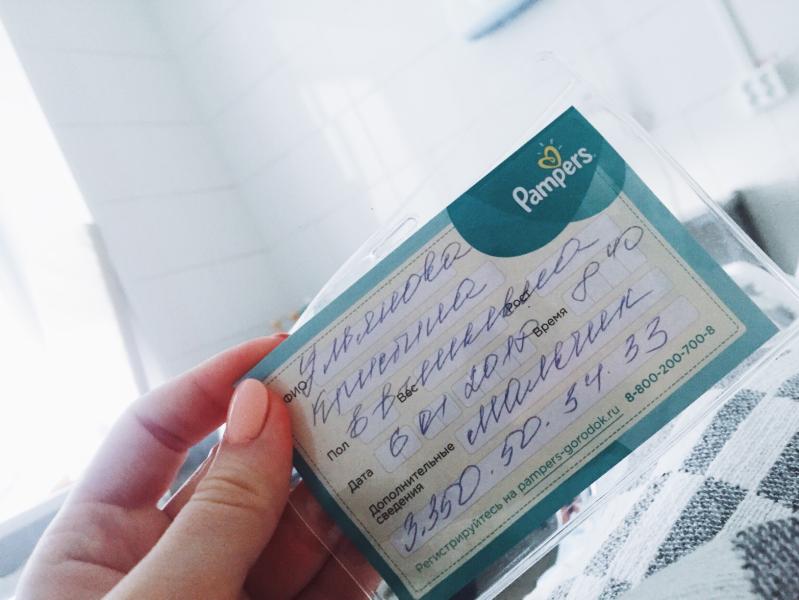 Pampers
ФИО Ульянова
Кристина
Вес Рост
Пол
Дата 6 01 2017 Время 8 40
Дополнительные сведения мальчик
3.350. 50. 34. 33
Регистрируйтесь на pampers-gorodok.ru 8-800-200-700-8